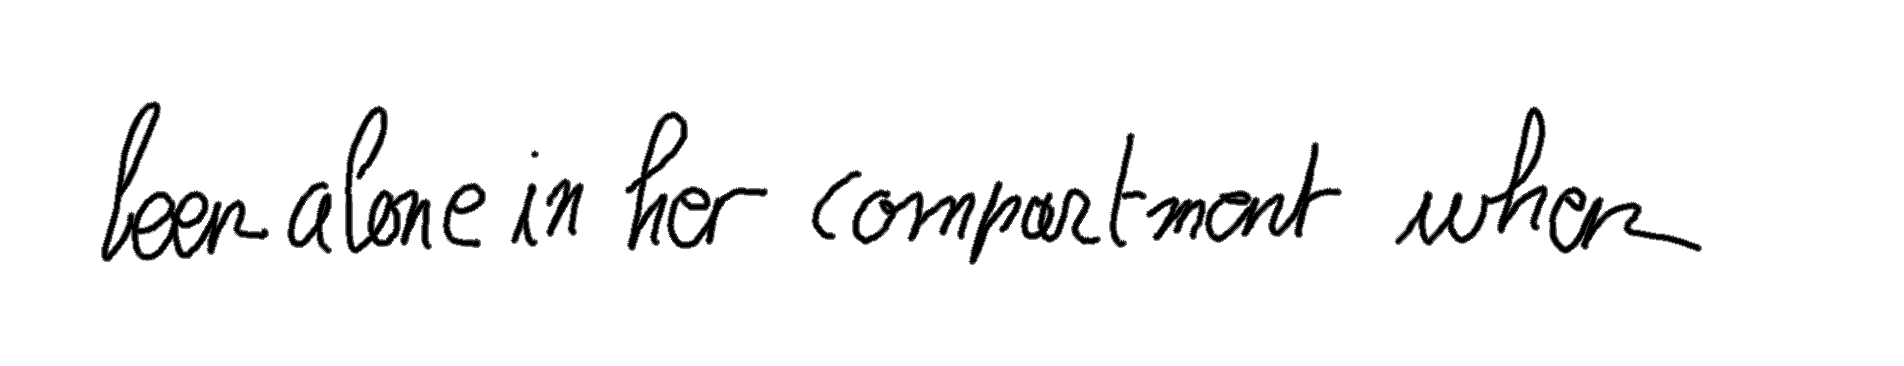 been alone in her compartment when